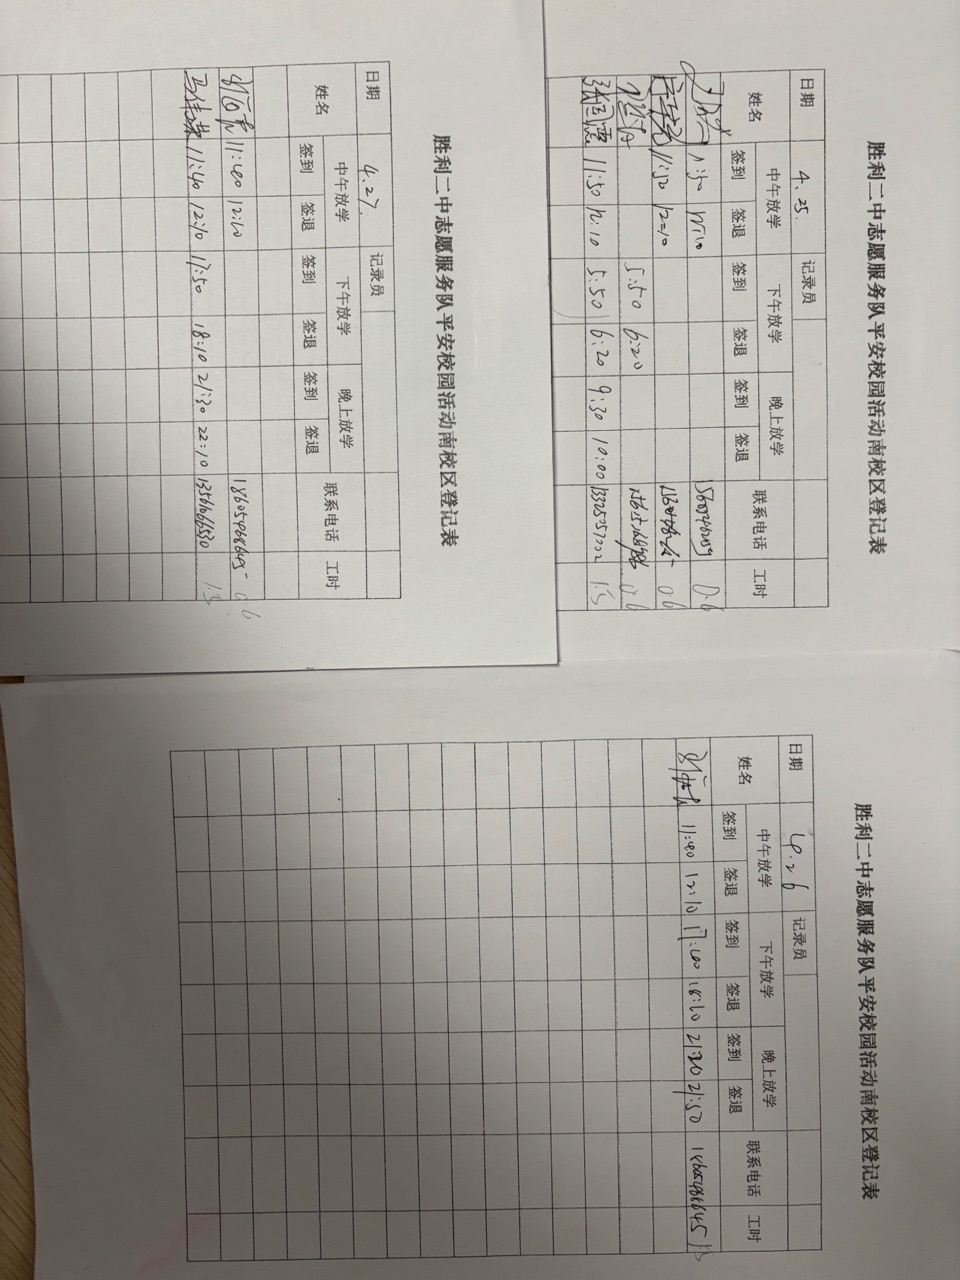 胜利二中志愿服务队平安校园活动南校区登记表
日期 4.25. 记录员
姓名 中午放学 下午放学 晚上放学 联系电话 工时
签到 签退 签到 签退 签到 签退
0.6
11:50 12:10 0.6
5:50 6:20 0.6
11:50 12:10 5:50 6:20 9:30 10:00 1.5
胜利二中志愿服务队平安校园活动南校区登记表
日期 4.27. 记录员
姓名 中午放学 下午放学 晚上放学 联系电话 工时
签到 签退 签到 签退 签到 签退
11:40 12:10 18605468645 0.6
11:40 12:10 17:50 18:10 21:30 22:10 1.5
胜利二中志愿服务队平安校园活动南校区登记表
日期 4.26 记录员
姓名 中午放学 下午放学 晚上放学 联系电话 工时
签到 签退 签到 签退 签到 签退
11:40 12:10 17:40 18:10 21:20 21:50 18605468645